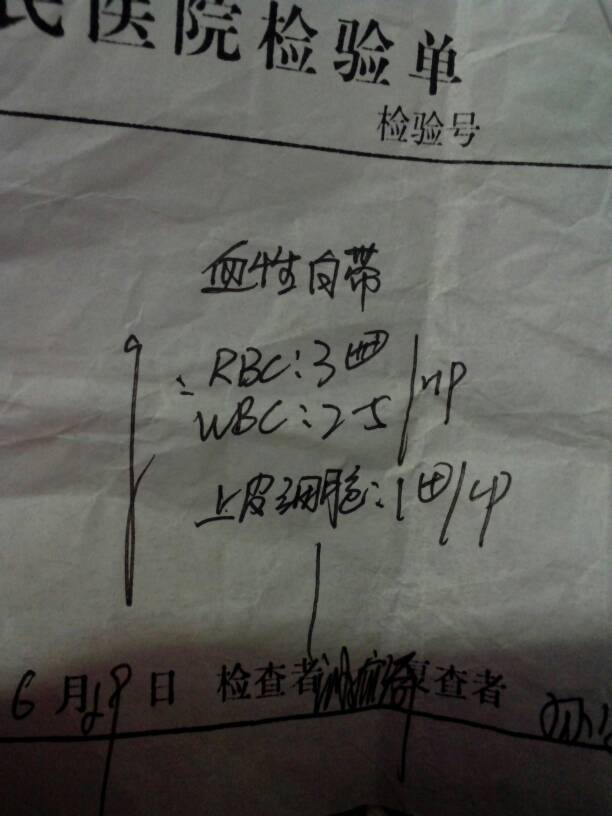 民医院检验单
检验号
血性白带
RBC:3 /HP
WBC:2-5
上皮细胞:1
6月29日 检查者 复查者